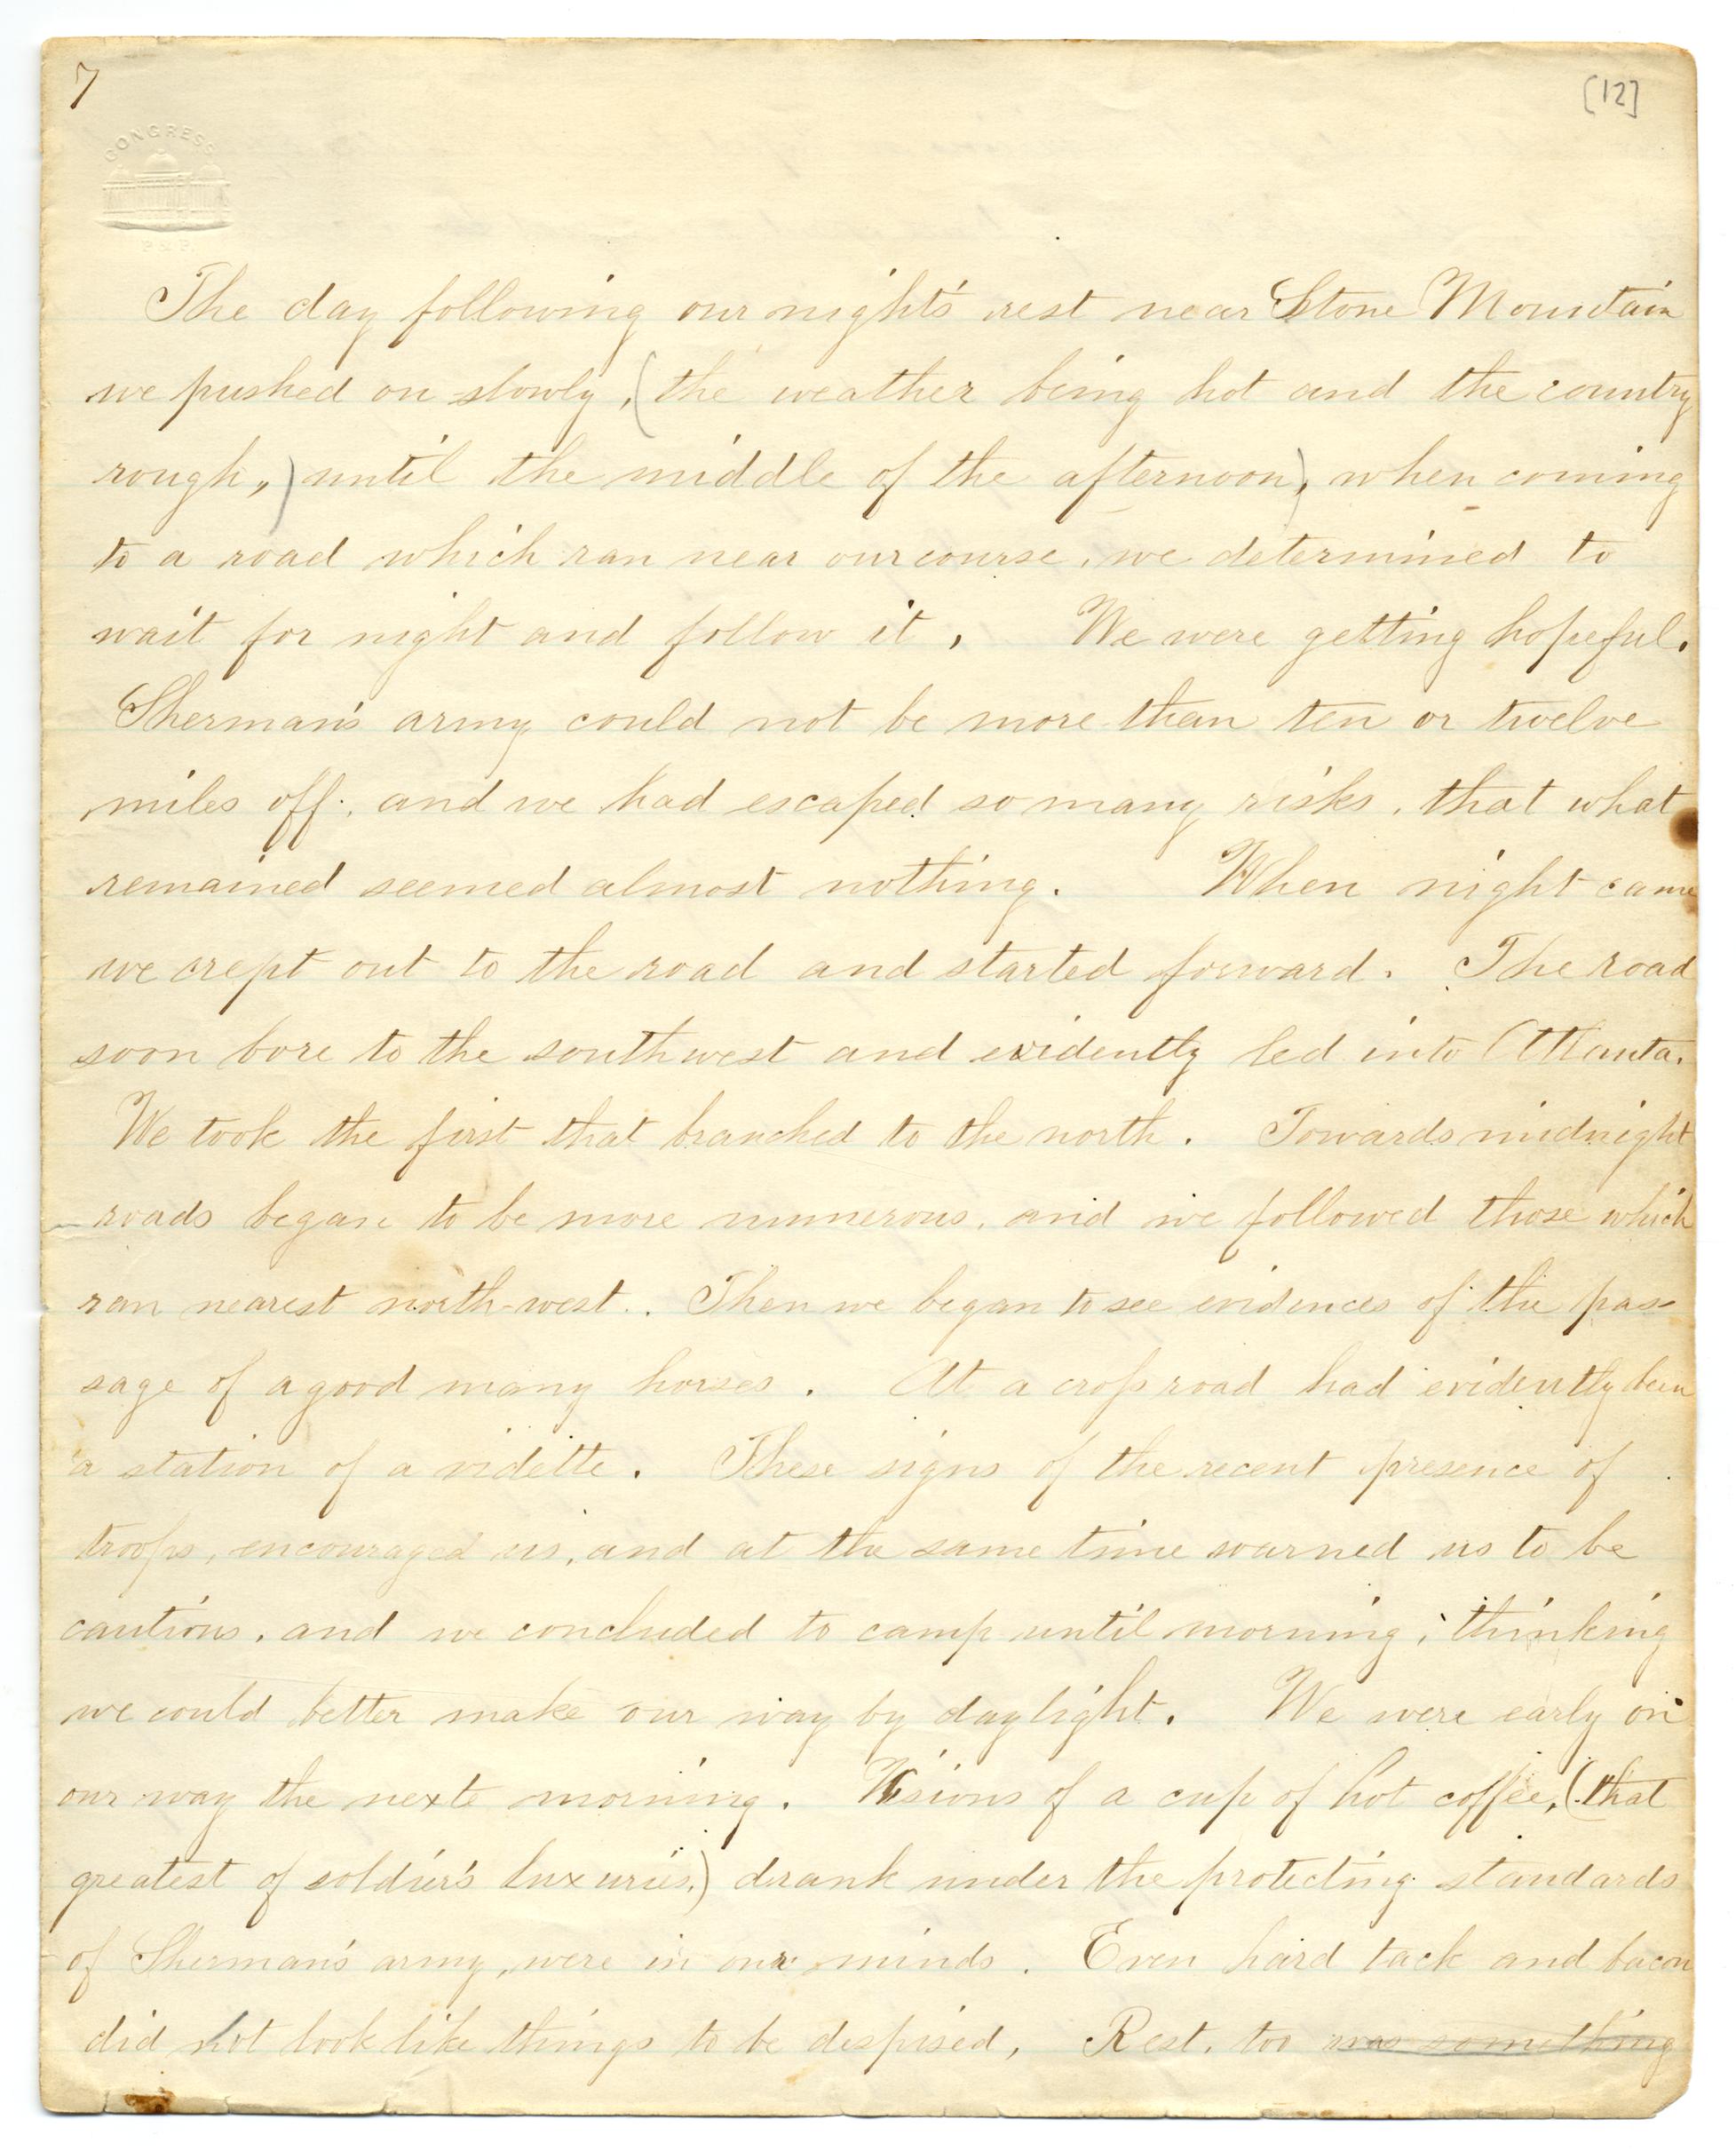 7
[12]
CONGRESS
P & P.
The day following our night's rest near Stone Mountain
we pushed on slowly, (the weather being hot and the country
rough,) until the middle of the afternoon), when coming
to a road which ran near our course, we determined to
wait for night and follow it. We were getting hopeful.
Sherman's army could not be more than ten or twelve
miles off, and we had escaped so many risks, that what
remained seemed almost nothing. When night came
we crept out to the road and started forward. The road
soon bore to the southwest and evidently led into Atlanta.
We took the first that branched to the north. Towards midnight
roads began to be more numerous, and we followed those which
ran nearest north-west. Then we began to see evidences of the pas-
sage of a good many horses. At a cross road had evidently been
a station of a vidette. These signs of the recent presence of
troops, encouraged us, and at the same time warned us to be
cautious, and we concluded to camp until morning; thinking
we could better make our way by daylight. We were early on
our way the next morning. Visions of a cup of hot coffee, (that
greatest of soldier's luxuries,) drank under the protecting standards
of Sherman's army, were in our minds. Even hard tack and bacon
did not look like things to be despised, Rest, too was something